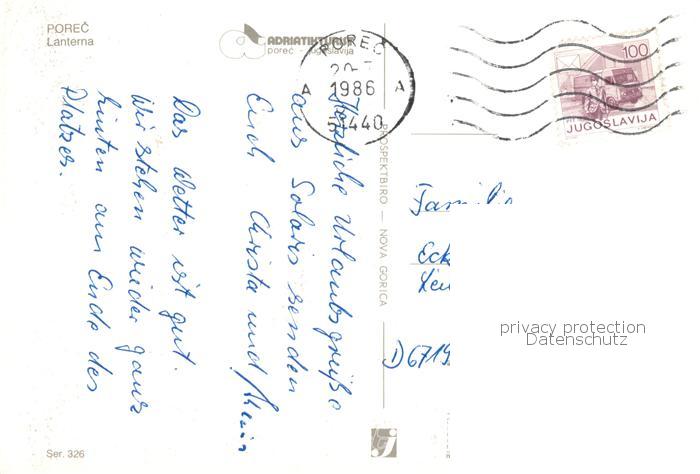 POREČ
Lanterna
ADRIATIKTURIST
poreč - jugoslavija
POREČ
1986
A
A
51440
100
JUGOSLAVIJA
Herzliche Urlaubsgrüße
aus Solaris senden
Euch Christa und
Das Wetter ist gut.
Wir stehen wieder ganz
hinten am Ende des
Platzes.
PROSPEKTBIRO — NOVA GORICA
Famili
Eck
D 6719
privacy protection
Datenschutz
Ser. 326